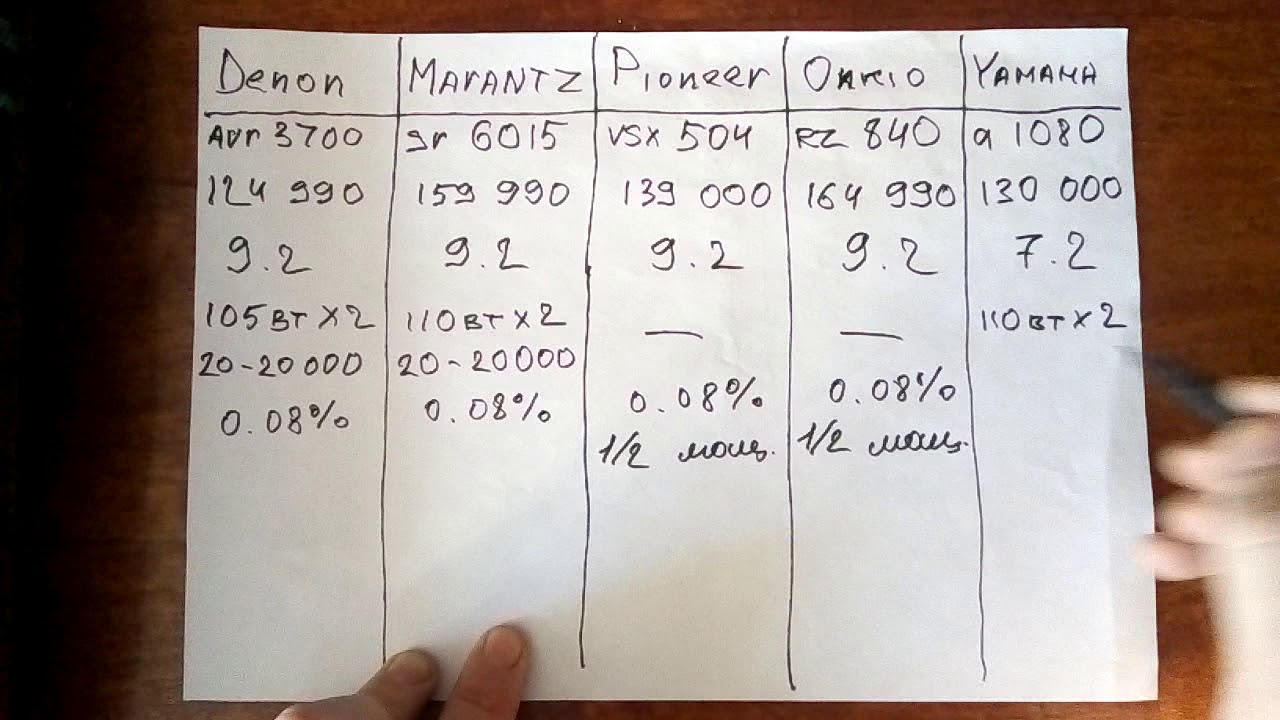 Denon MARANTZ Pioneer Onkio YAMAHA
Avr 3700 sr 6015 VSX 504 RZ 840 a 1080
124 990 159 990 139 000 164 990 130 000
9.2 9.2 9.2 9.2 7.2
105 Вт х 2 110 Вт х 2 — — 110 Вт х 2
20-20 000 20-20000
0.08% 0.08% 0.08% 0.08%
1/2 мощ. 1/2 мощ.